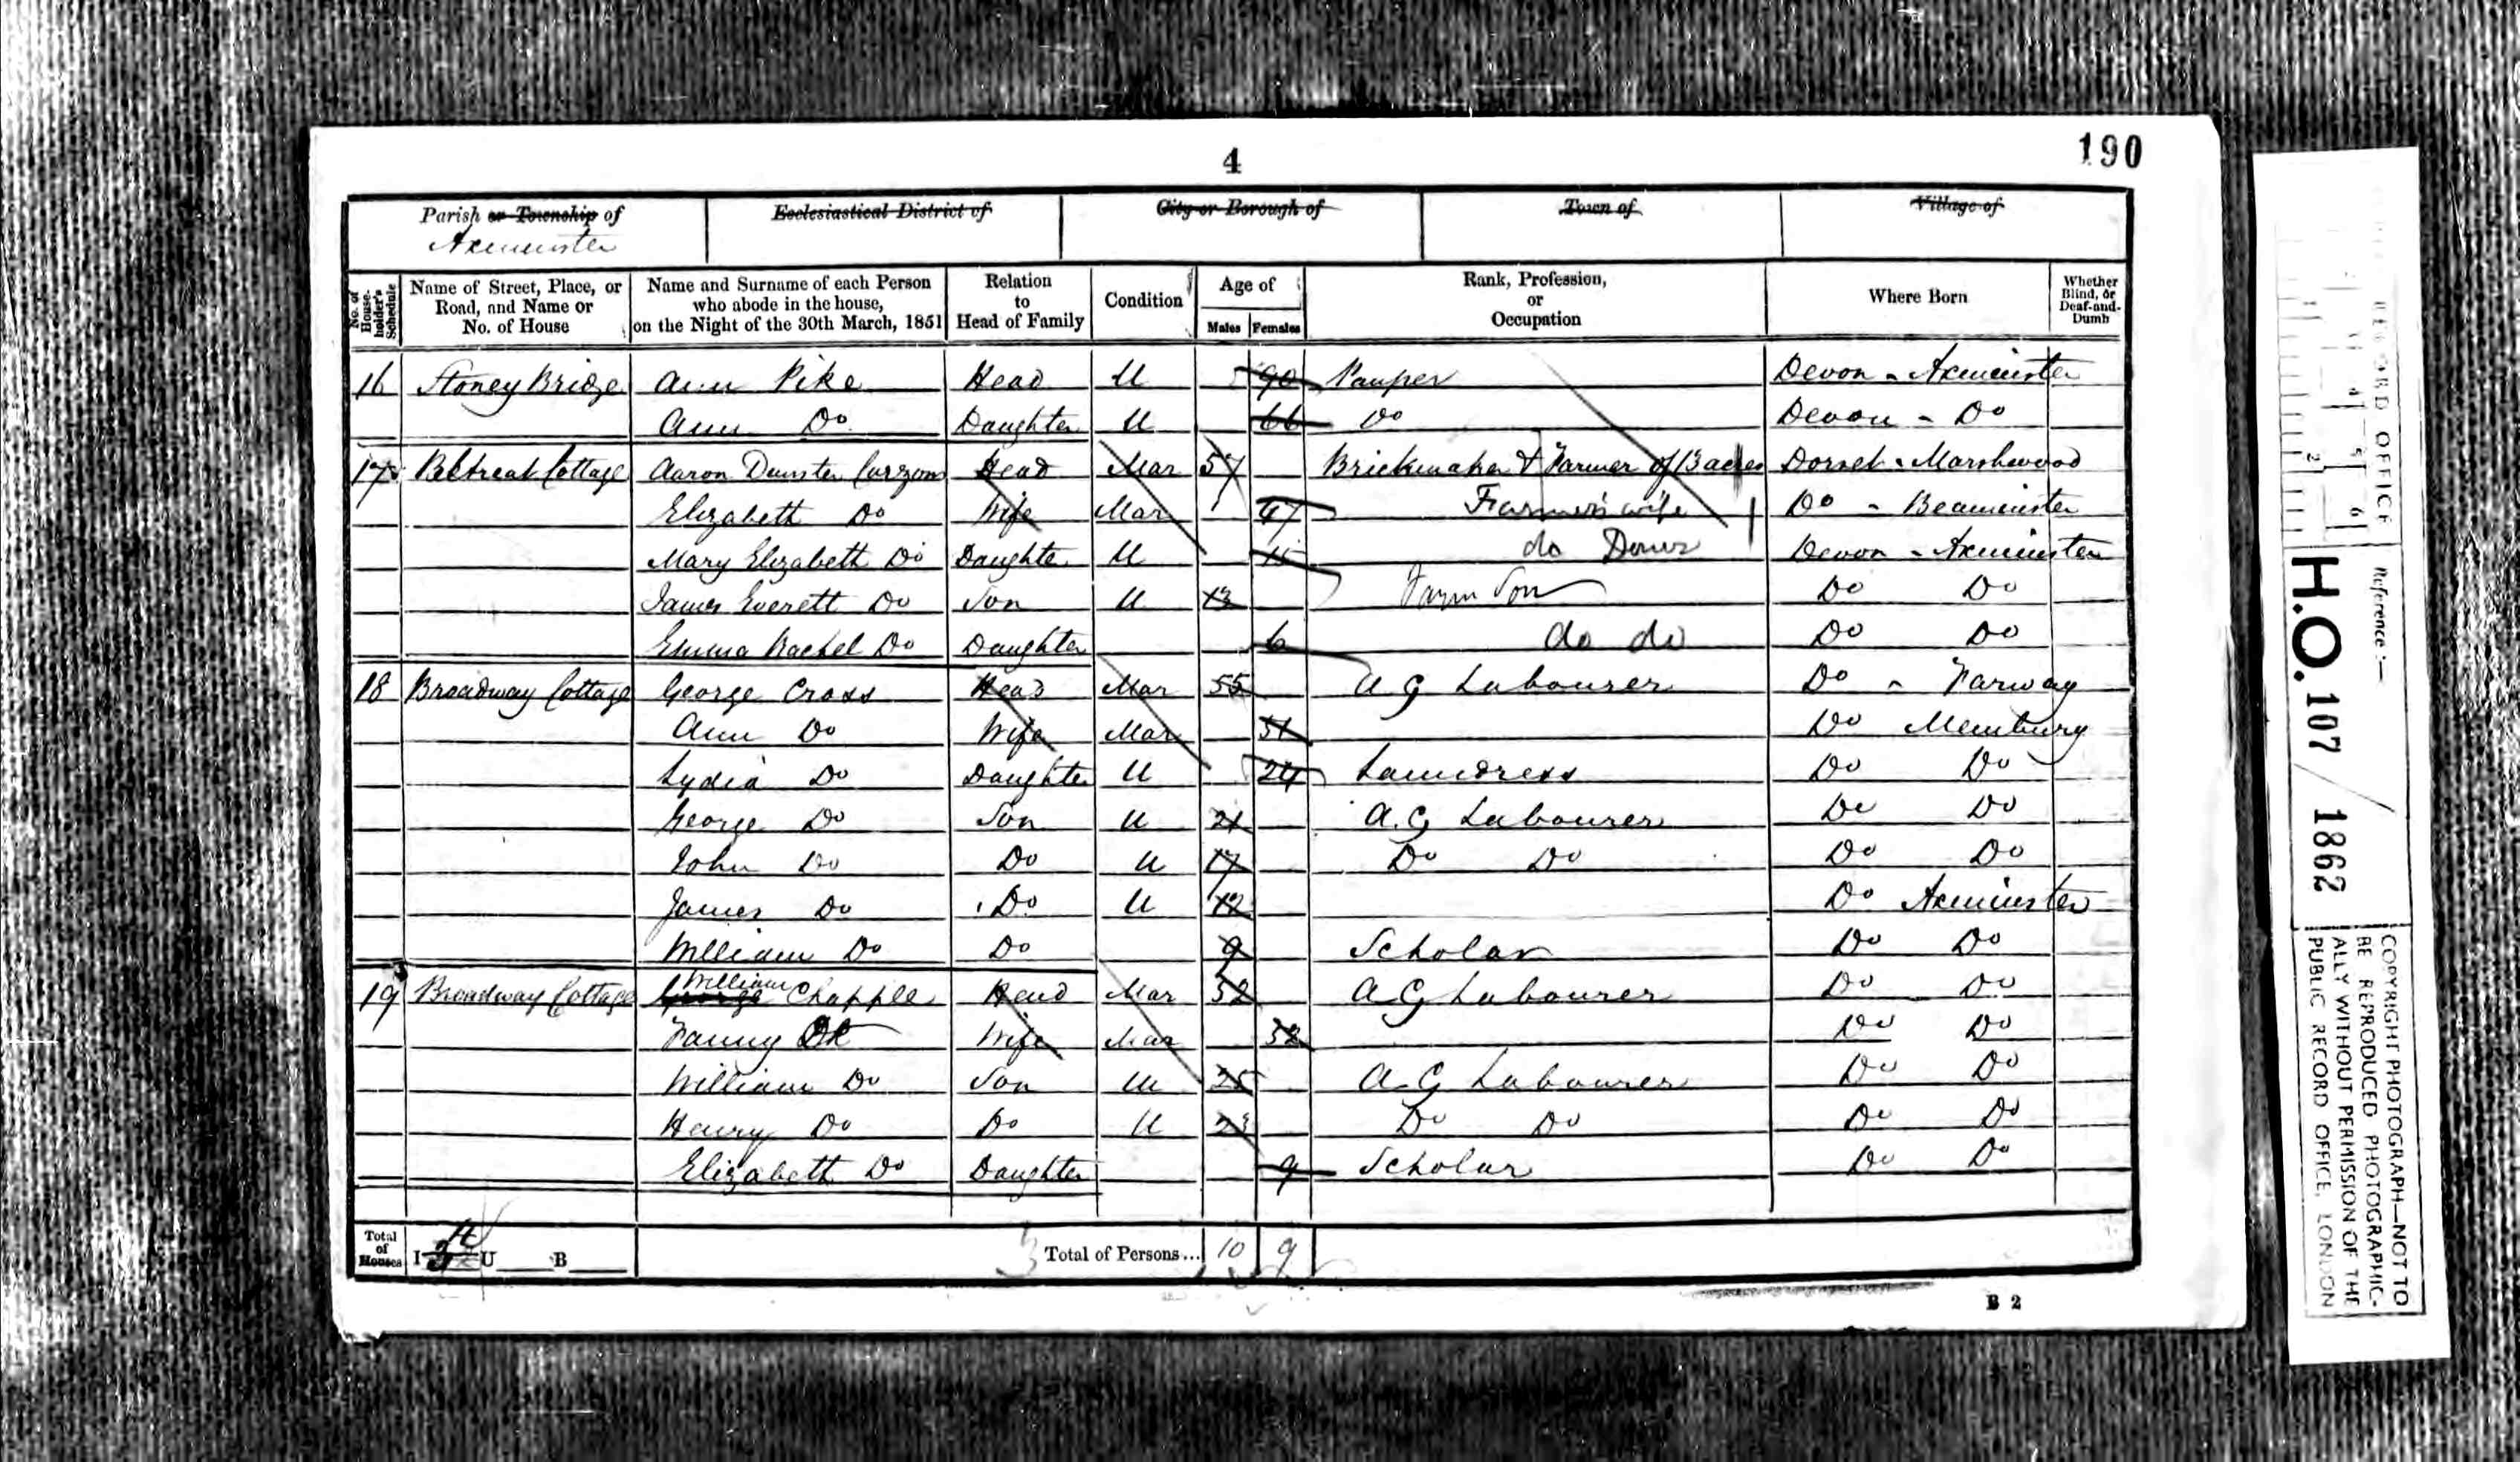 190
4
Parish or Township of Axminster
Ecclesiastical District of
City or Borough of
Town of
Village of
No. of House-holder's Schedule
Name of Street, Place, or Road, and Name or No. of House
Name and Surname of each Person who abode in the house, on the Night of the 30th March, 1851
Relation to Head of Family
Condition
Age of
Males Females
Rank, Profession, or Occupation
Where Born
Whether Blind, or Deaf-and-Dumb
16 Stoney Bridge Ann Pike Head U 90 Pauper Devon - Axminster
Ann Do Daughter U 66 Do Devon - Do
17 Retreat Cottage Aaron Dunster Head Mar 57 Brickmaker & Farmer of acres Dorset - Marshwood
Elizabeth Do Wife Mar 47 Farmer's wife Do - Beaminster
Mary Elizabeth Do Daughter U 15 do Devon - Axminster
James Everett Do Son U 13 Farm Son Do Do
Emma Rachel Do Daughter 6 do do Do Do
18 Broadway Cottage George Cross Head Mar 55 A G Labourer Do - Farway
Ann Do Wife Mar 51 Do Membury
Lydia Do Daughter U 24 Laundress Do Do
George Do Son U 21 A.G Labourer Do Do
John Do Do U 17 Do Do Do Do
James Do Do U 12 Do Axminster
William Do Do 9 Scholar Do Do
19 Broadway Cottage George William Chapple Head Mar 52 A G Labourer Do Do
Fanny Do Wife Mar 52 Do Do
William Do Son U 25 A G Labourer Do Do
Henry Do Do U 23 Do Do Do Do
Elizabeth Do Daughter 9 Scholar Do Do
Total of Houses I 4 U B Total of Persons... 10 9
B 2
RECORD OFFICE
Reference:-
H.O. 107 / 1862
COPYRIGHT PHOTOGRAPH—NOT TO
BE REPRODUCED PHOTOGRAPHIC-
ALLY WITHOUT PERMISSION OF THE
PUBLIC RECORD OFFICE, LONDON